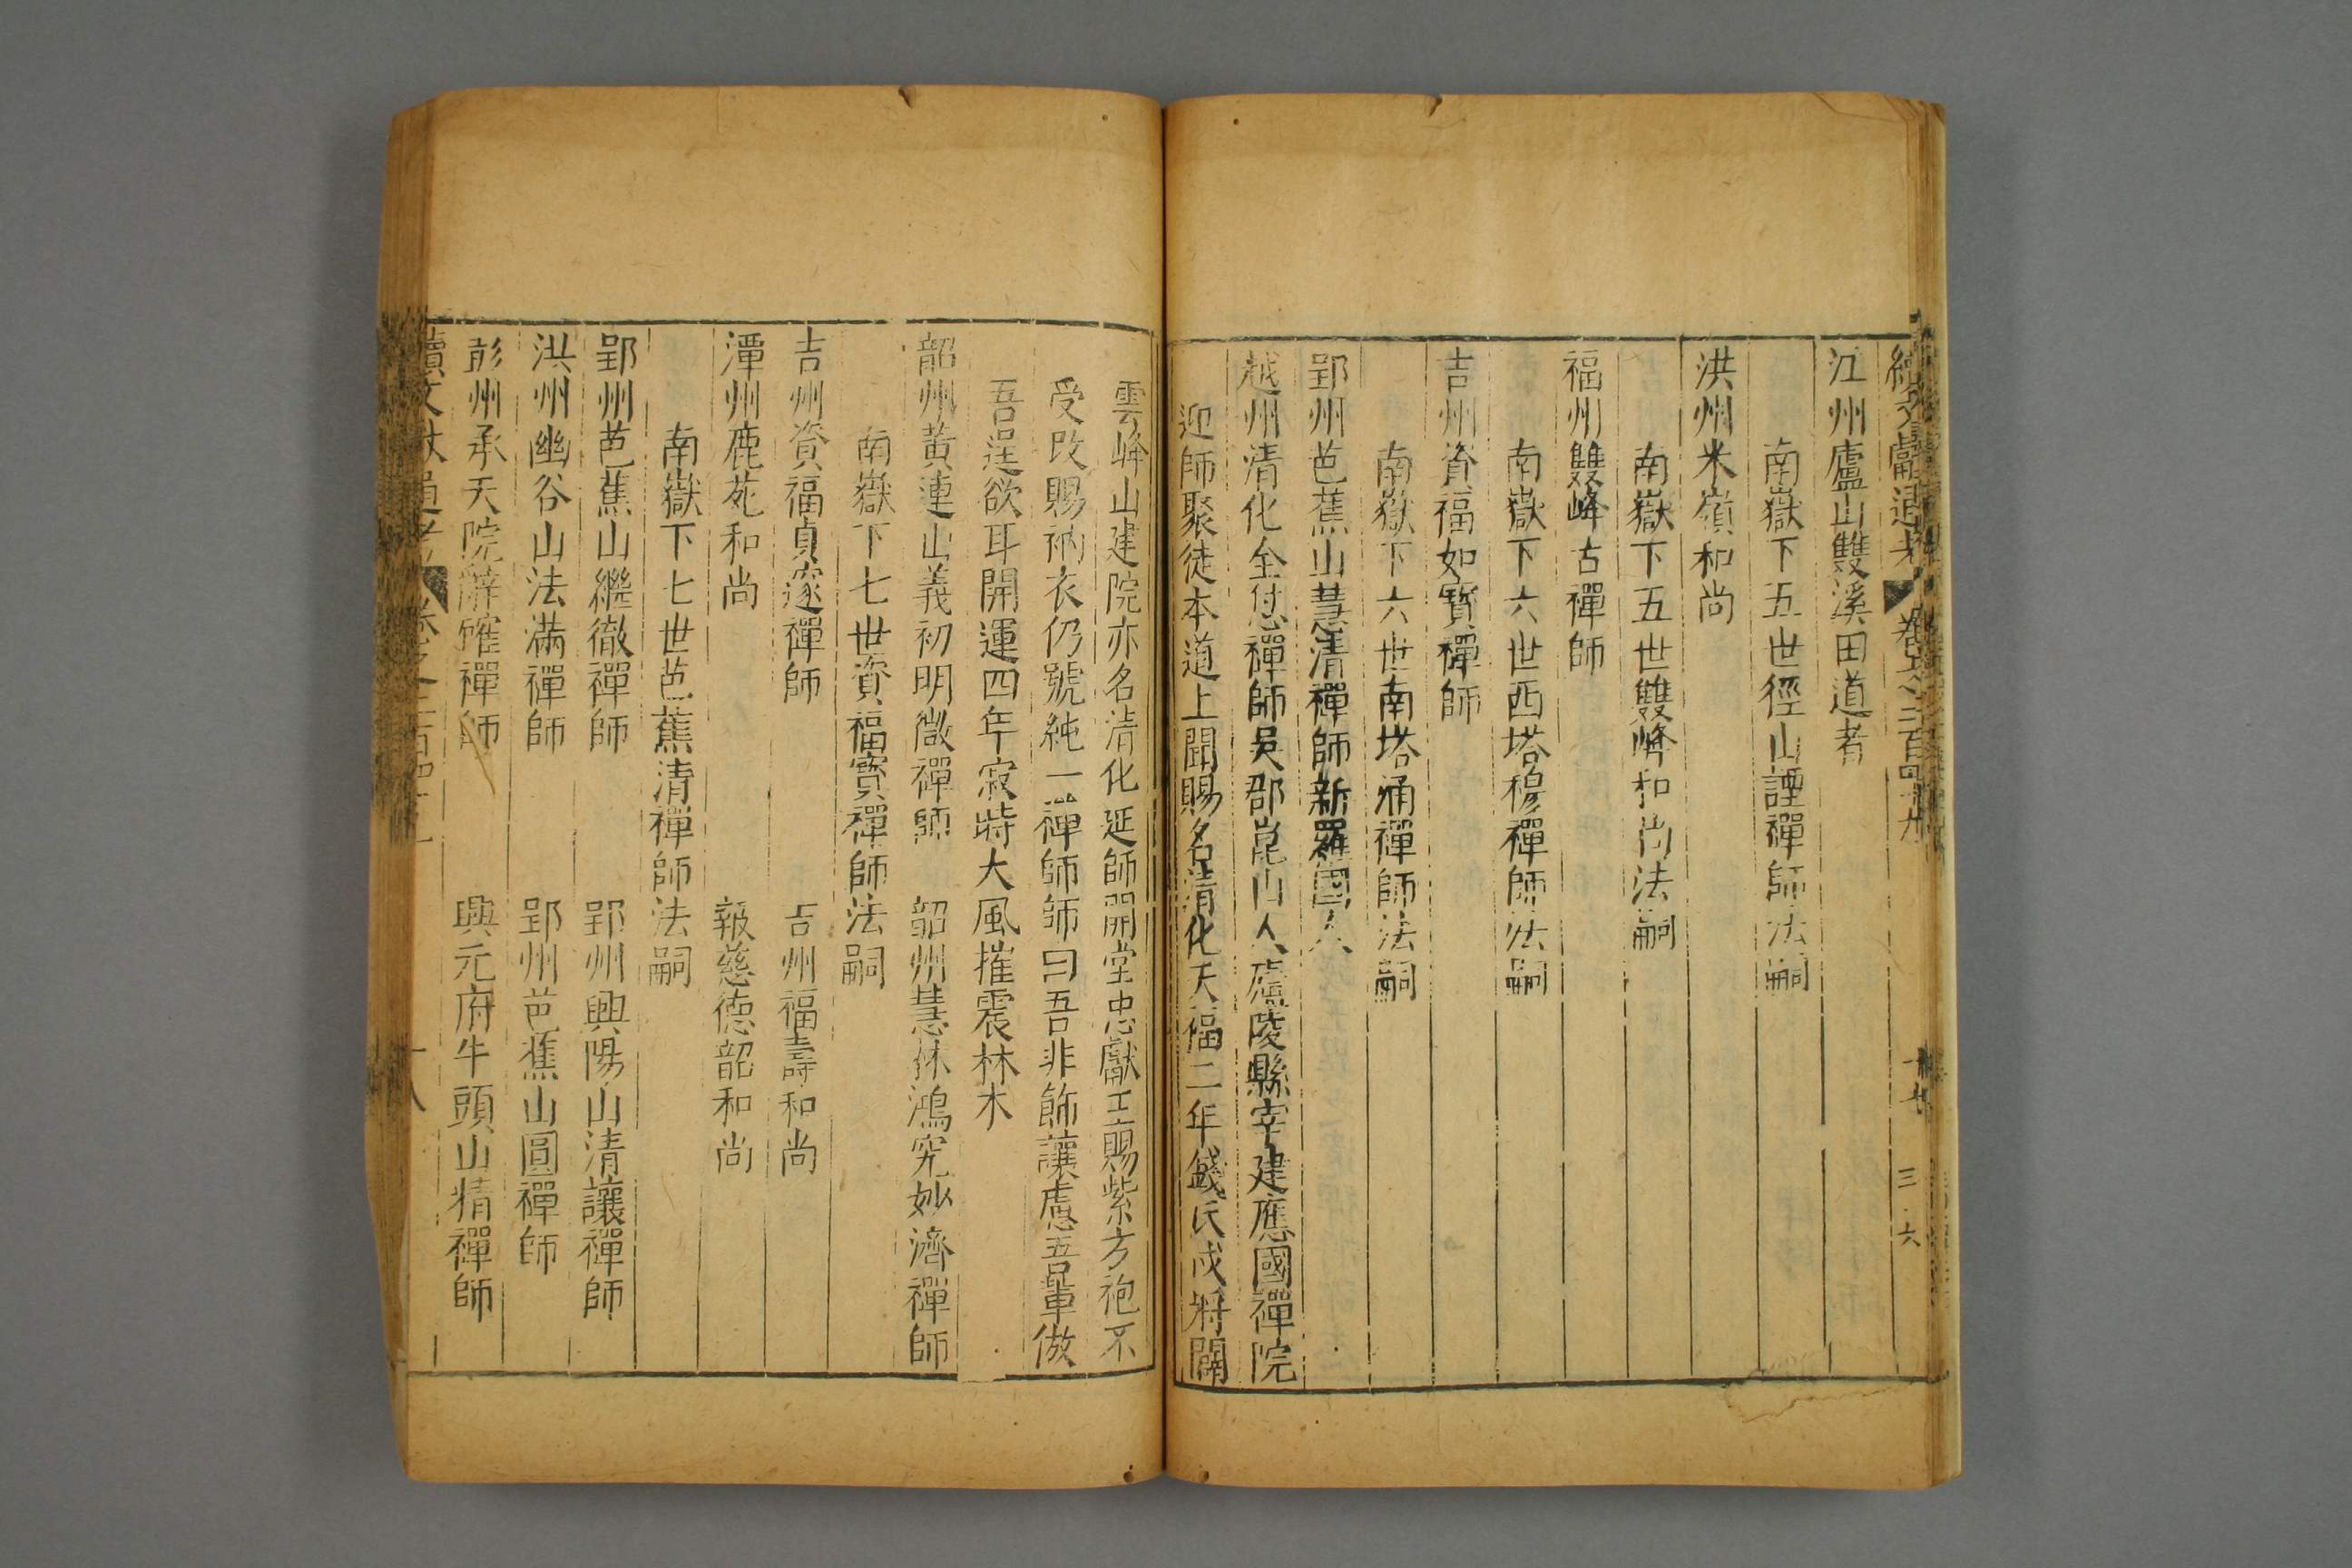 續文獻通考 卷之二百四十九 十七 三六
江州廬山雙溪田道者
南嶽下五世徑山諲禪師法嗣
洪州米嶺和尚
南嶽下五世雙峰和尚法嗣
福州雙峰古禪師
南嶽下六世西塔穆禪師法嗣
吉州資福如寳禪師
南嶽下六世南塔涌禪師法嗣
郢州芭蕉山慧清禪師新羅國人
越州清化全怤禪師吳郡崑山人廬陵縣宰建應國禪院
迎師聚徒本道上聞賜名清化天福二年錢氏戍將闢
雲峰山建院亦名清化延師開堂忠獻王賜紫方袍不
受改賜衲衣仍號純一禪師師曰吾非飾讓慮吾輩倣
吾逞欲耳開運四年寂時大風摧震林木
韶州黃連山義初明微禪師 韶州慧林鴻究妙濟禪師
南嶽下七世資福寳禪師法嗣
吉州資福貞邃禪師 吉州福壽和尚
潭州鹿苑和尚 報慈德韶和尚
南嶽下七世芭蕉清禪師法嗣
郢州芭蕉山繼徹禪師 郢州興陽山清讓禪師
洪州幽谷山法滿禪師 郢州芭蕉山圓禪師
彭州承天院辭確禪師 興元府牛頭山精禪師
續文獻通考 卷之二百四十九 十八